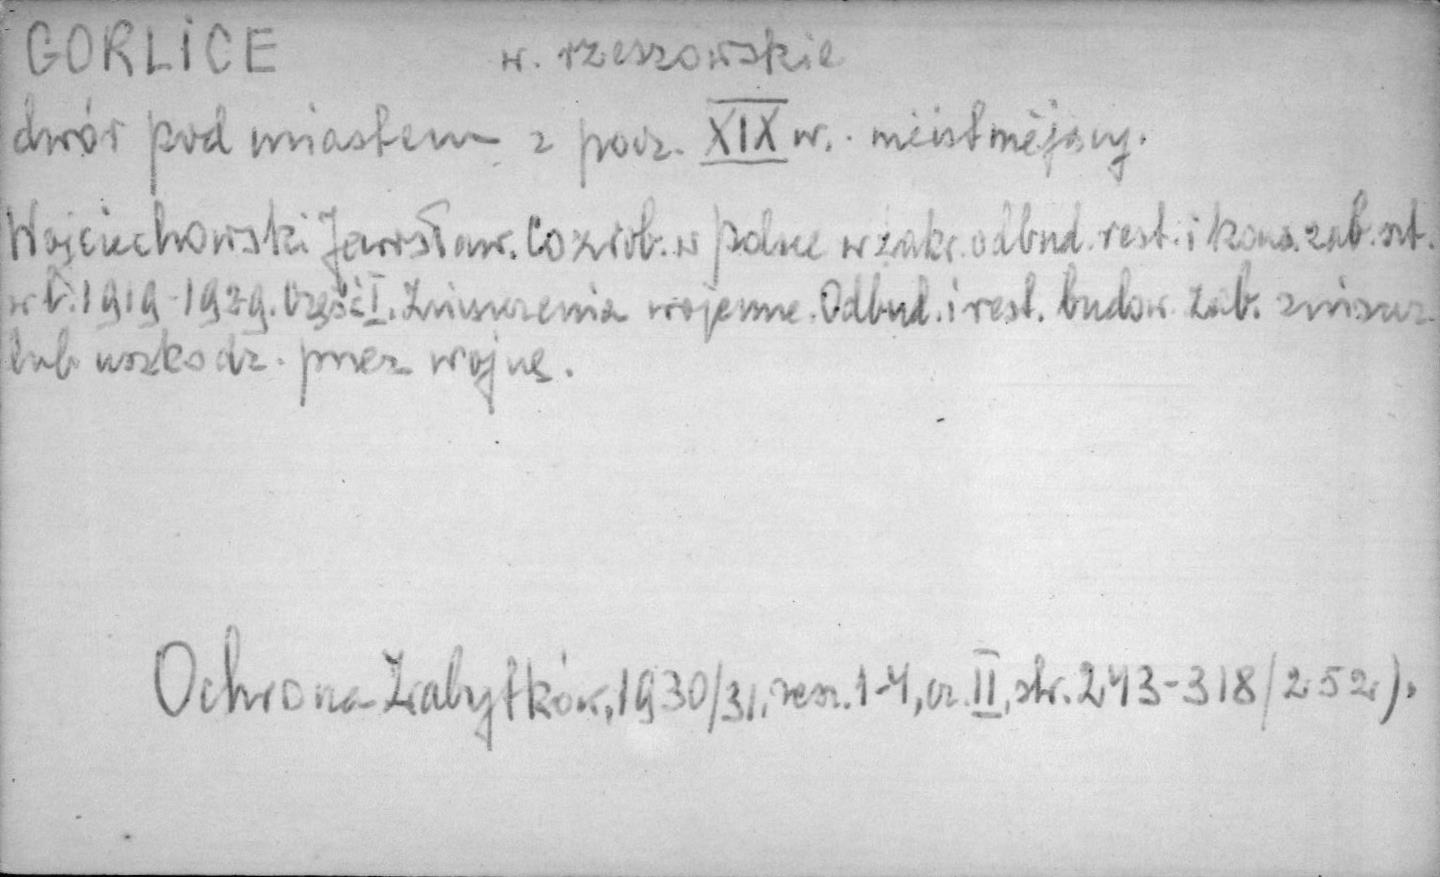 GORLICE w. rzeszowskie
dwór pod miastem z pocz. XIX w. nieistniejący.
Wojciechowski Jarosław. Co zrob. w Polsce w zakr. odbud. rest. i kons. zab. szt.
w l. 1919-1929. Część I. Zniszczenia wojenne. Odbud. i rest. budow. zab. zniszcz.
lub uszkodz. przez wojnę.
Ochrona Zabytków, 1930/31, zesz. 1-4, cz. II, str. 243-318/252).